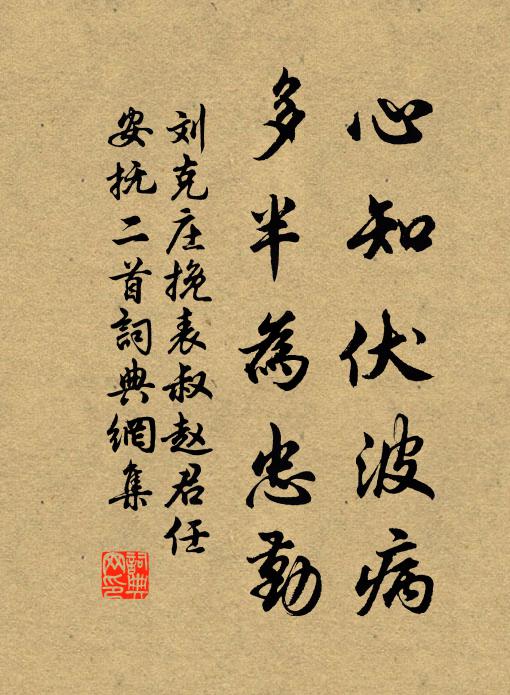 心知伏波病
多半為忠勤
刘克庄挽表叔赵君任
安抚二首詞典網集
詞典網印